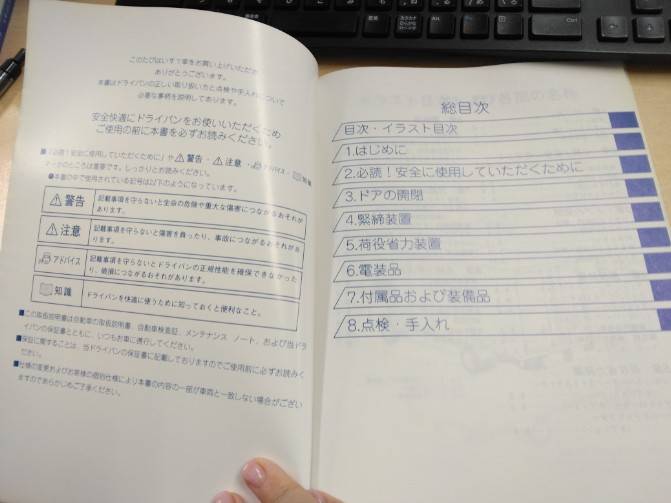 このたびはいすゞ車をお買い上げいただき
ありがとうございます。
本書はドライバンの正しい取り扱い方と点検や手入れについて
必要な事柄を説明してあります。
安全快適にドライバンをお使いいただくため
ご使用の前に本書を必ずお読みください。
■「必読!安全に使用していただくために」や 警告・注意・アドバイス・知識
マークのところは重要です。しっかりとお読みください。
●本書の中で使用されている記号は以下のようになっています。
警告 記載事項を守らないと生命の危険や重大な傷害につながるおそれが
あります。
注意 記載事項を守らないと傷害を負ったり、事故につながるおそれがあ
ります。
アドバイス 記載事項を守らないとドライバンの正規性能を確保できなかった
り、破損につながるおそれがあります。
知識 ドライバンを快適に使うために知っておくと便利なこと。
■この取扱説明書は自動車の取扱説明書、自動車検査証、メンテナンス ノート、および当ドラ
イバンの保証書とともに、いつもお車に携行してください。
■保証に関することは、当ドライバンの保証書に記載しておりますのでご使用前に必ずお読みく
ださい。
■仕様の変更およびお客様の個別仕様により本書の内容の一部が車両と一致しない場合がござい
ますのであらかじめご了承ください。
総目次
目次・イラスト目次
1.はじめに
2.必読!安全に使用していただくために
3.ドアの開閉
4.緊締装置
5.荷役省力装置
6.電装品
7.付属品および装備品
8.点検・手入れ